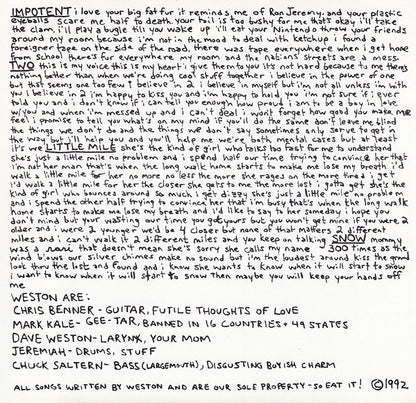 IMPOTENT i love your big fat fur it reminds me of Ron Jeremy. and your plastic
eyeballs scare me half to death your tail is too bushy for me thats okay i'll take
the clam, i'll play a bugle till you wake up i'll eat your Nintendo throw your friends
around my room because i'm not in the mood to deal with ketchup i found a
foreigner tape on the side of the road, there was tape everywhere when i get home
from school there's fur everywhere my room and the nations streets are a mess.
TWO this is my voice this is my heart i give them to you its not hard because to me things
nothing better than when we're doing cool stuff together i believe in the power of one
but that seems one too few i believe in 2 i believe in myself but i'm not all unless i'm with
you i believe in 2 i'm happy to kiss you and i'm happy to hold you i'm not sure if i ever
told you and i don't know if i can tell you enough how proud i am to be a boy in love
w/you and when i'm messed up and i can't deal i won't forget how good you make me
feel i promise to tell you what's on my mind if you'll do the same don't leave me blind
the things we don't do and the things we don't say sometimes only serve to get in
the way but i'll help you and you'll help me we're both mental cases but at least
it's we LITTLE MILE she's the kind of girl who talks too fast for me to understand
she's just a little mile no problem and i spend half our time trying to convince her that
i'm not her man that's when the long walk home starts to make me lose my breath i'd
walk a little mile for her no more no less the more she rages on the more tired i get
i'd walk a little mile for her the closer she gets to me the more lost i gotta get she's the
kind of girl who bounces around so much i get dizzy she's just a little mile no problem
and i spend the other half trying to convince her that i'm busy that's when the long walk
home starts to make me lose my breath and i'd like to say to her someday i hope you
don't mind but your wasting our time you got yours but you won't get mine if you were 2
older and i were 2 younger we'd be 4 closer but none of that matters 2 different
miles and i can't walk it 2 different miles and you keep on talking SNOW mommy
was a nun that doesn't mean she's sorry she calls my name 300 times as the
wind blows our silver chimes make no sound but i'm the loudest around kiss the ground
look thru the lost and found and i know she wants to know when it will start to snow
i want to know when it will start to snow then maybe you will keep your hands off
me
WESTON ARE:
CHRIS BENNER - GUITAR, FUTILE THOUGHTS OF LOVE
MARK KALE - GEE-TAR, BANNED IN 16 COUNTRIES + 49 STATES
DAVE WESTON - LARYNX, YOUR MOM
JEREMIAH - DRUMS, STUFF
CHUCK SALTERN - BASS (LARGEMOUTH), DISGUSTING BOYISH CHARM
ALL SONGS WRITTEN BY WESTON AND ARE OUR SOLE PROPERTY - SO EAT IT! ©1992